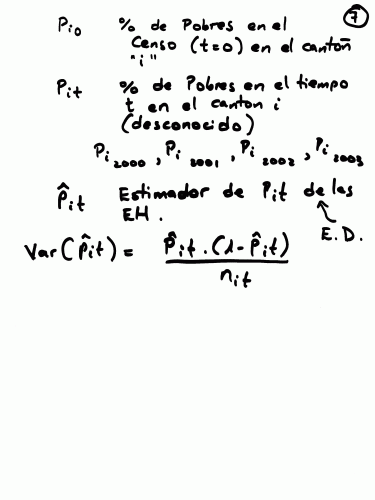 7
Pi0 % de Pobres en el
Censo (t=0) en el cantoñ
"i"
Pit % de Pobres en el tiempo
t en el canton i
(desconocido)
Pi 2000, Pi 2001, Pi 2002, Pi 2003
P̂it Estimador de Pit de las
EH.
E.D.
Var(P̂it) = P̂it.(1-P̂it)
nit